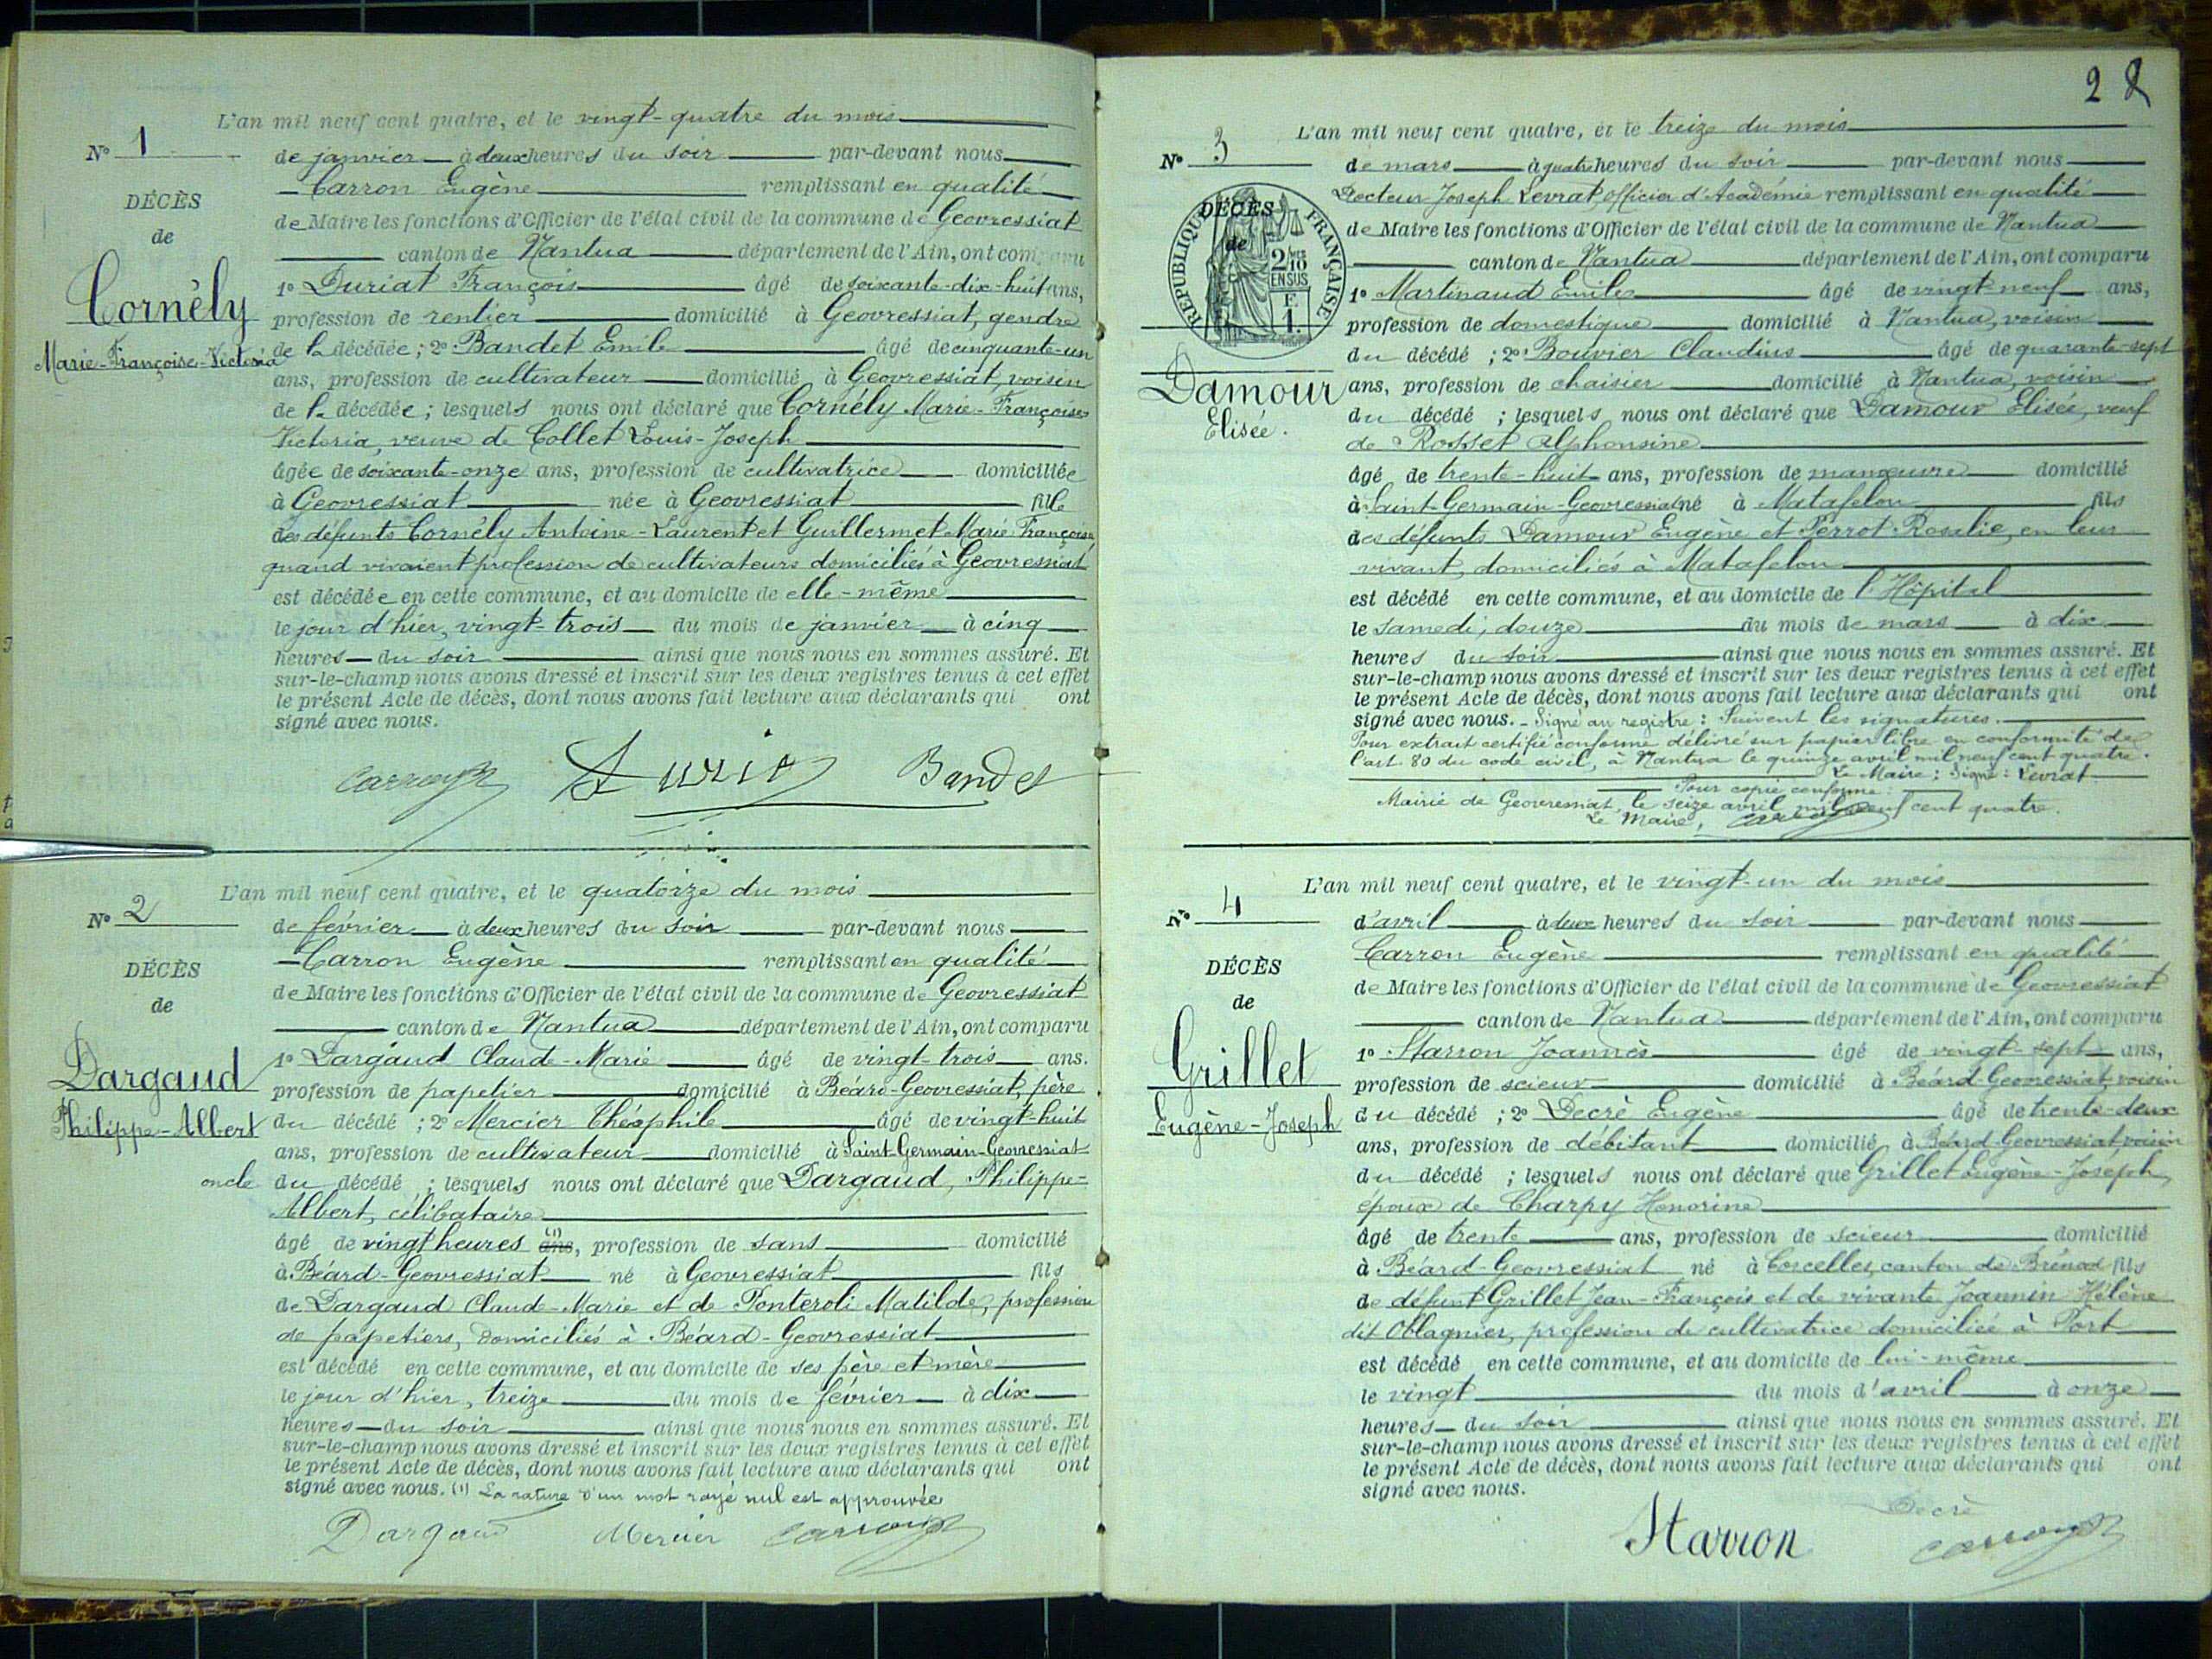 L'an mil neuf cent quatre, et le vingt-quatre du mois
N° 1
de janvier à deux heures du soir par-devant nous
DÉCÈS
de
Cornély
Marie-Françoise-Victoria
Carron Eugène remplissant en qualité
de Maire les fonctions d'Officier de l'état civil de la commune de Geovressiat
canton de Nantua département de l'Ain, ont comparu
1° Duriat François âgé de soixante-dix-huit ans,
profession de rentier domicilié à Geovressiat, gendre
de la décédée ; 2° Bandet Emile âgé de cinquante-un
ans, profession de cultivateur domicilié à Geovressiat, voisin
de la décédée ; lesquels nous ont déclaré que Cornély Marie-Françoise
Victoria, veuve de Collet Louis-Joseph
âgée de soixante-onze ans, profession de cultivatrice domiciliée
à Geovressiat née à Geovressiat fille
des défunts Cornély Antoine-Laurent et Guillermet Marie Françoise,
quand vivaient profession de cultivateurs domiciliés à Geovressiat
est décédée en cette commune, et au domicile de elle-même
le jour d'hier, vingt-trois du mois de janvier à cinq
heures du soir ainsi que nous nous en sommes assuré. Et
sur-le-champ nous avons dressé et inscrit sur les deux registres tenus à cet effet
le présent Acte de décès, dont nous avons fait lecture aux déclarants qui ont
signé avec nous.
Carron Duriat Bandet
L'an mil neuf cent quatre, et le quatorze du mois
N° 2
de février à deux heures du soir par-devant nous
DÉCÈS
de
Dargaud
Philippe-Albert
Carron Eugène remplissant en qualité
de Maire les fonctions d'Officier de l'état civil de la commune de Geovressiat
canton de Nantua département de l'Ain, ont comparu
1° Dargaud Claude-Marie âgé de vingt-trois ans.
profession de papetier domicilié à Béard-Geovressiat, père
du décédé ; 2° Mercier Théophile âgé de vingt-huit
ans, profession de cultivateur domicilié à Saint-Germain-Geovressiat
oncle du décédé ; lesquels nous ont déclaré que Dargaud, Philippe-
Albert, célibataire
âgé de vingt heures (1) ans, profession de sans domicilié
à Béard-Geovressiat né à Geovressiat fils
de Dargaud Claude-Marie et de Ponteroli Matilde, profession
de papetiers, domiciliés à Béard-Geovressiat
est décédé en cette commune, et au domicile de ses père et mère
le jour d'hier, treize du mois de février à dix
heures du soir ainsi que nous nous en sommes assuré. Et
sur-le-champ nous avons dressé et inscrit sur les deux registres tenus à cet effet
le présent Acte de décès, dont nous avons fait lecture aux déclarants qui ont
signé avec nous. (1) La rature d'un mot rayé nul est approuvée
Dargaud Mercier Carron
28
L'an mil neuf cent quatre, et le treize du mois
N° 3
de mars à quatre heures du soir par-devant nous
DÉCÈS
de
RÉPUBLIQUE FRANÇAISE
2/10 EN SUS
F. 1.
Damour
Elisée.
Docteur Joseph Levrat, officier d'Académie remplissant en qualité
de Maire les fonctions d'Officier de l'état civil de la commune de Nantua
canton de Nantua département de l'Ain, ont comparu
1° Martinaud Emile âgé de vingt neuf ans,
profession de domestique domicilié à Nantua, voisin
du décédé ; 2° Bouvier Claudius âgé de quarante-sept
ans, profession de chaisier domicilié à Nantua, voisin
du décédé ; lesquels nous ont déclaré que Damour Elisée, veuf
de Rosset Alphonsine
âgé de trente-huit ans, profession de manœuvre domicilié
à Saint-Germain-Geovressiat né à Matafelon fils
des défunts Damour Eugène et Perrot Rosalie, en leur
vivant, domiciliés à Matafelon
est décédé en cette commune, et au domicile de l'Hôpital
le samedi, douze du mois de mars à dix
heures du soir ainsi que nous nous en sommes assuré. Et
sur-le-champ nous avons dressé et inscrit sur les deux registres tenus à cet effet
le présent Acte de décès, dont nous avons fait lecture aux déclarants qui ont
signé avec nous. - Signé au registre : Suivent les signatures.
Pour extrait certifié conforme délivré sur papier libre en conformité de
l'art. 80 du code civil, à Nantua le quinze avril mil neuf cent quatre.
Le Maire : Signé : Levrat
Pour copie conforme :
Mairie de Geovressiat, le seize avril mil neuf cent quatre.
Le Maire, Carron
L'an mil neuf cent quatre, et le vingt-un du mois
N° 4
d'avril à deux heures du soir par-devant nous
DÉCÈS
de
Grillet
Eugène-Joseph
Carron Eugène remplissant en qualité
de Maire les fonctions d'Officier de l'état civil de la commune de Geovressiat
canton de Nantua département de l'Ain, ont comparu
1° Starron Joannès âgé de vingt-sept ans,
profession de scieur domicilié à Béard-Geovressiat, voisin
du décédé ; 2° Decrè Eugène âgé de trente-deux
ans, profession de débitant domicilié à Béard-Geovressiat, voisin
du décédé ; lesquels nous ont déclaré que Grillet Eugène-Joseph,
époux de Charpy Honorine
âgé de trente ans, profession de scieur domicilié
à Béard-Geovressiat né à Corcelles, canton de Brénod fils
de défunt Grillet Jean-François et de vivante Joannin Hélène
dit Oblagnier, profession de cultivatrice domiciliée à Port
est décédé en cette commune, et au domicile de lui-même
le vingt du mois d'avril à onze
heures du soir ainsi que nous nous en sommes assuré. Et
sur-le-champ nous avons dressé et inscrit sur les deux registres tenus à cet effet
le présent Acte de décès, dont nous avons fait lecture aux déclarants qui ont
signé avec nous.
Decrè
Starron Carron